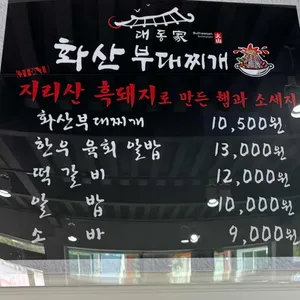 대동家
火山
화산 부대찌개
MENU
지리산 흑돼지로 만든 햄과 소세지
화산부대찌개 10,500원
한우 육회 알밥 13,000원
떡갈비 12,000원
알밥 10,000원
소바 9,000원